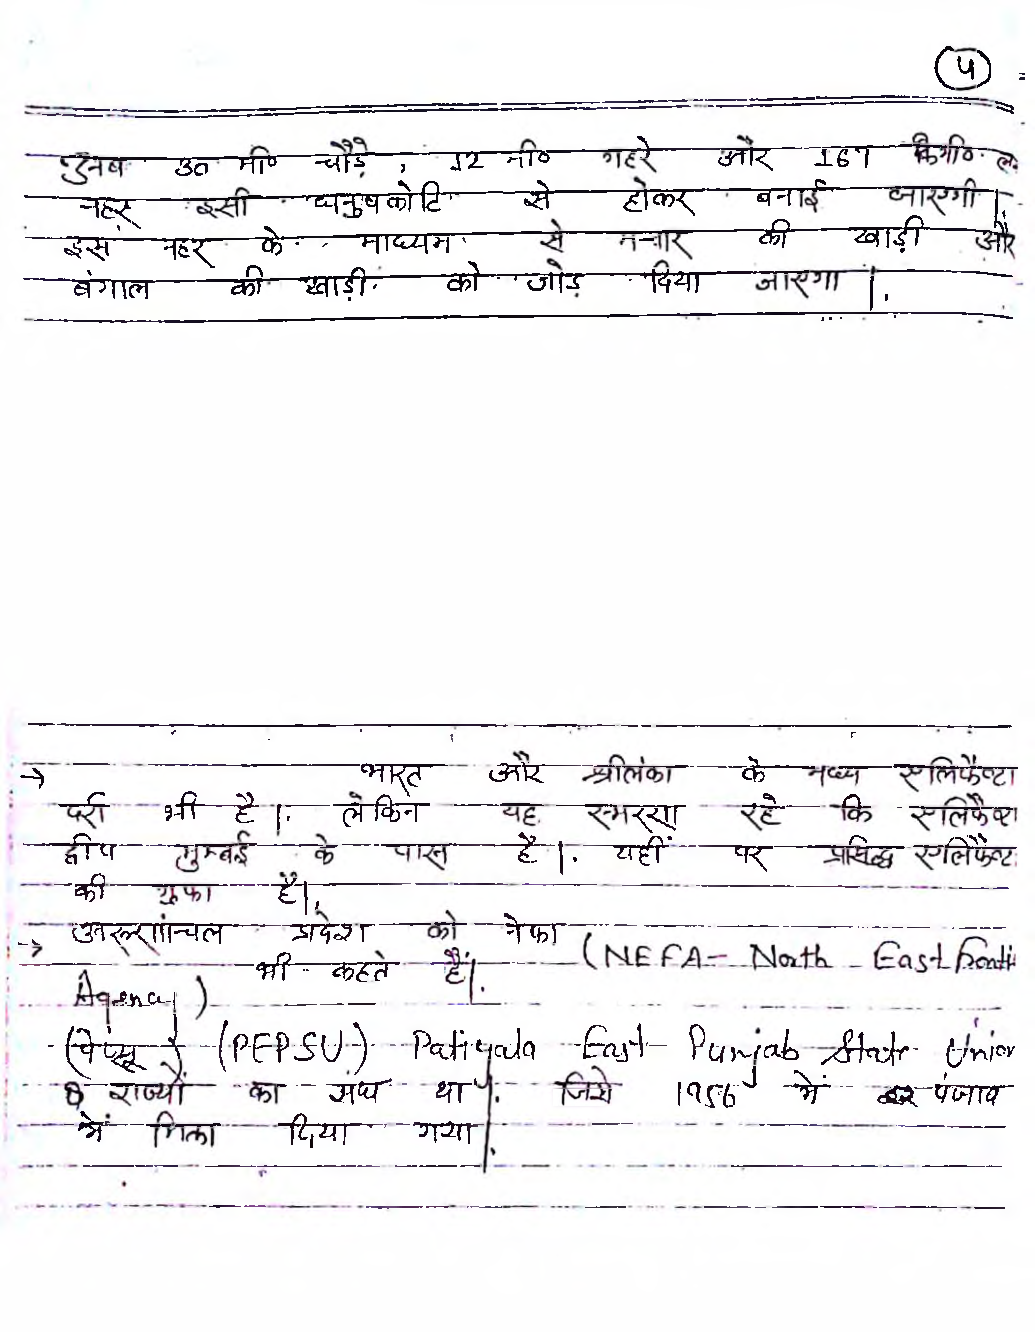 ५
30 मी० चौड़े, 12 मी० गहरे और 167 कि०मी०
नहर इसी धनुषकोटि से होकर बनाई जाएगी।
इस नहर के माध्यम से मन्नार की खाड़ी और
बंगाल की खाड़ी को जोड़ दिया जाएगा।
→ भारत और श्रीलंका के मध्य एलिफैण्टा
दर्रा भी है। लेकिन यह स्मरण रहे कि एलिफैण्टा
द्वीप मुम्बई के पास है। यहीं पर प्रसिद्ध एलिफैण्ट
की गुफा है।
→ अरूणांन्चल प्रदेश को नेफा
भी कहते हैं। (NEFA - North East Fronti
Agency)
(पेप्सू) (PEPSU) Patiyala East Punjab State Union
8 राज्यों का संघ था। जिसे 1956 में पंजाब
में मिला दिया गया।